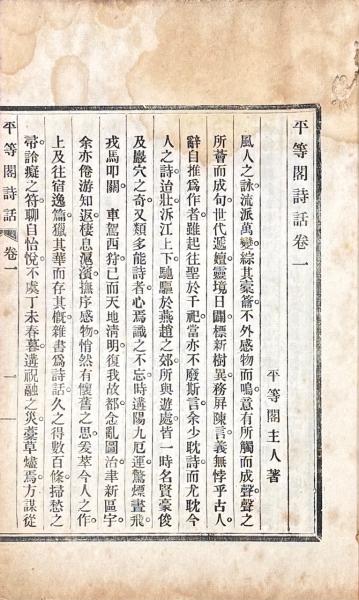 平等閣詩話卷一
平等閣主人著
風人之詠流派萬變綜其豪籥不外感物而鳴意有所觸而成聲聲之
所薈而成句世代遞嬗靈境日闢標新樹異務屏陳言義無悖乎古人
辭自推爲作者雖起往聖於千祀當亦不廢斯言余少耽詩而尤耽今
人之詩迨壯泝江上下馳驅於燕趙之郊所與遊處皆一時名賢豪俊
及巖穴之奇又類多能詩者心焉識之不忘時遘陽九厄運驚煙晝飛
戎馬叩關車駕西狩已而天地清明復我故都念亂圖治聿新區宇
余亦倦游知返棲息滬濱撫序感物悄然有懷舊之思爰萃今人之作
上及往宿逸篇獵其華而存其槪雜書爲詩話久之得數百條掃愁之
帚詅癡之符聊自怡悅不虞丁未春暮遘祝融之災藁草燼焉方謀從
平等閣詩話
卷一
一